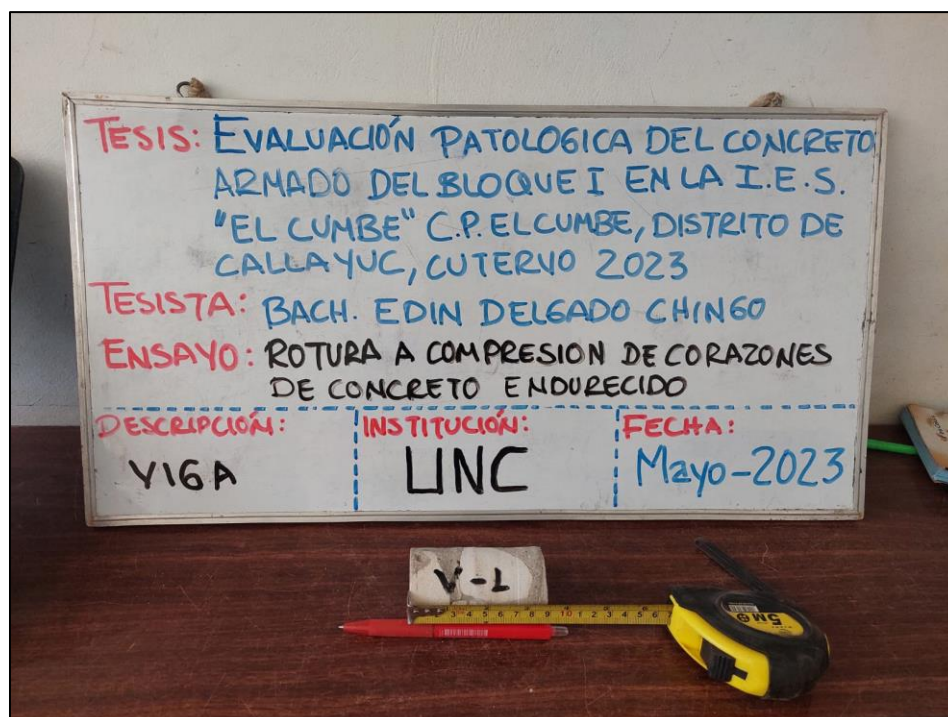 TESIS: EVALUACIÓN PATOLOGICA DEL CONCRETO
ARMADO DEL BLOQUE I EN LA I.E.S.
"EL CUMBE" C.P. EL CUMBE, DISTRITO DE
CALLAYUC, CUTERVO 2023
TESISTA: BACH. EDIN DELGADO CHINGO
ENSAYO: ROTURA A COMPRESION DE CORAZONES
DE CONCRETO ENDURECIDO
DESCRIPCIÓN: INSTITUCIÓN: FECHA:
VIGA UNC Mayo-2023
V-1
3 4 5 6 7 8 9 10 1 2 3 4 5 6
5M